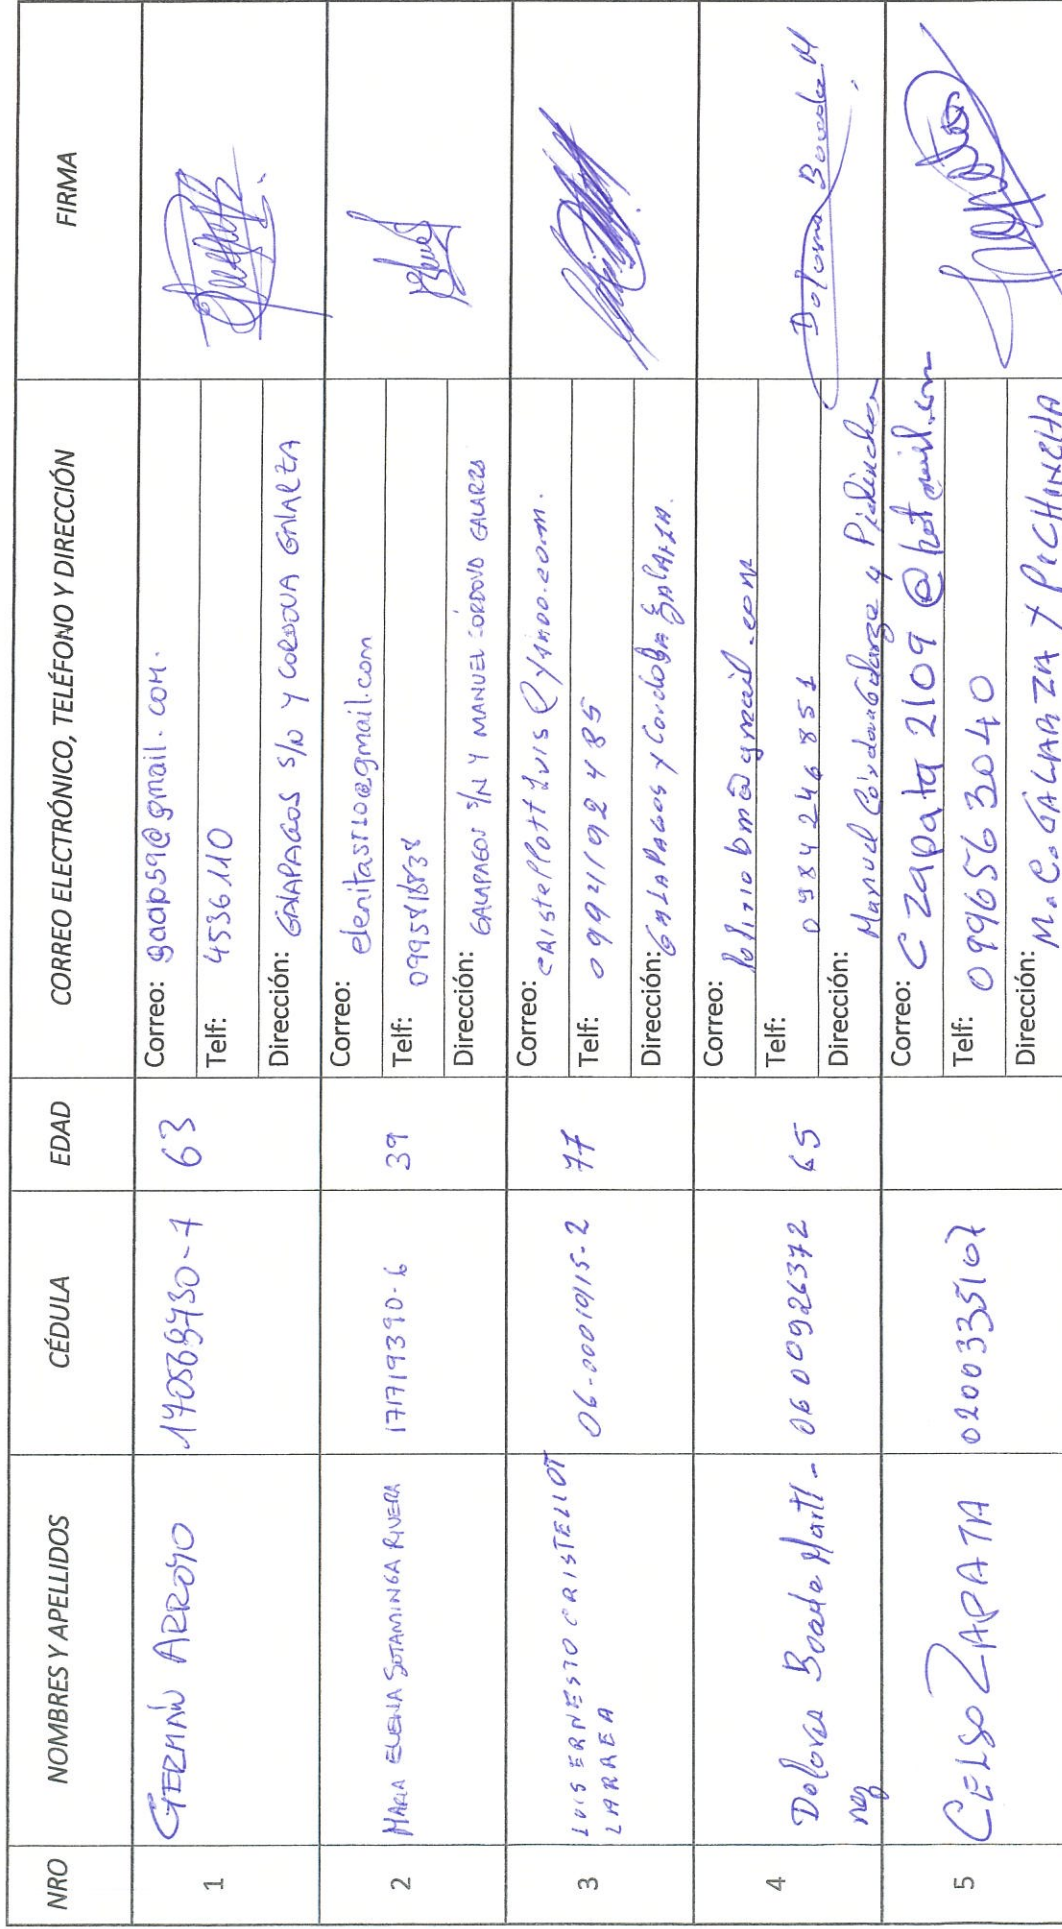 NRO NOMBRES Y APELLIDOS CÉDULA EDAD CORREO ELECTRÓNICO, TELÉFONO Y DIRECCIÓN FIRMA
1 GERMÁN ARROYO 63
Correo: gaap59@gmail.com.
Telf: 4536110
Dirección: GALAPAGOS S/N Y CORDOVA GALARZA
2 MARIA ELENA SOTAMINGA RIVERA 171719390-6 39
Correo:
Telf:
Dirección: GALAPAGOS S/N Y MANUEL CORDOVO GALARZA
3 LUIS ERNESTO CRISTELLOT
LARREA 77
Correo:
Telf: 0992192485
Dirección: GALAPAGOS Y Cordoba GALARZA.
4 Dolores Boada Martí-
nez 0600926372 65
Correo:
Telf: 0984246851
Dirección: Manuel Córdova Galarza y Pichincha
Dolores Boada M
5 CELSO ZAPATA 0200335107
Correo: Czapata2109@hotmail.com
Telf: 0996563040
Dirección: M. C. GALARZA Y PICHINCHA